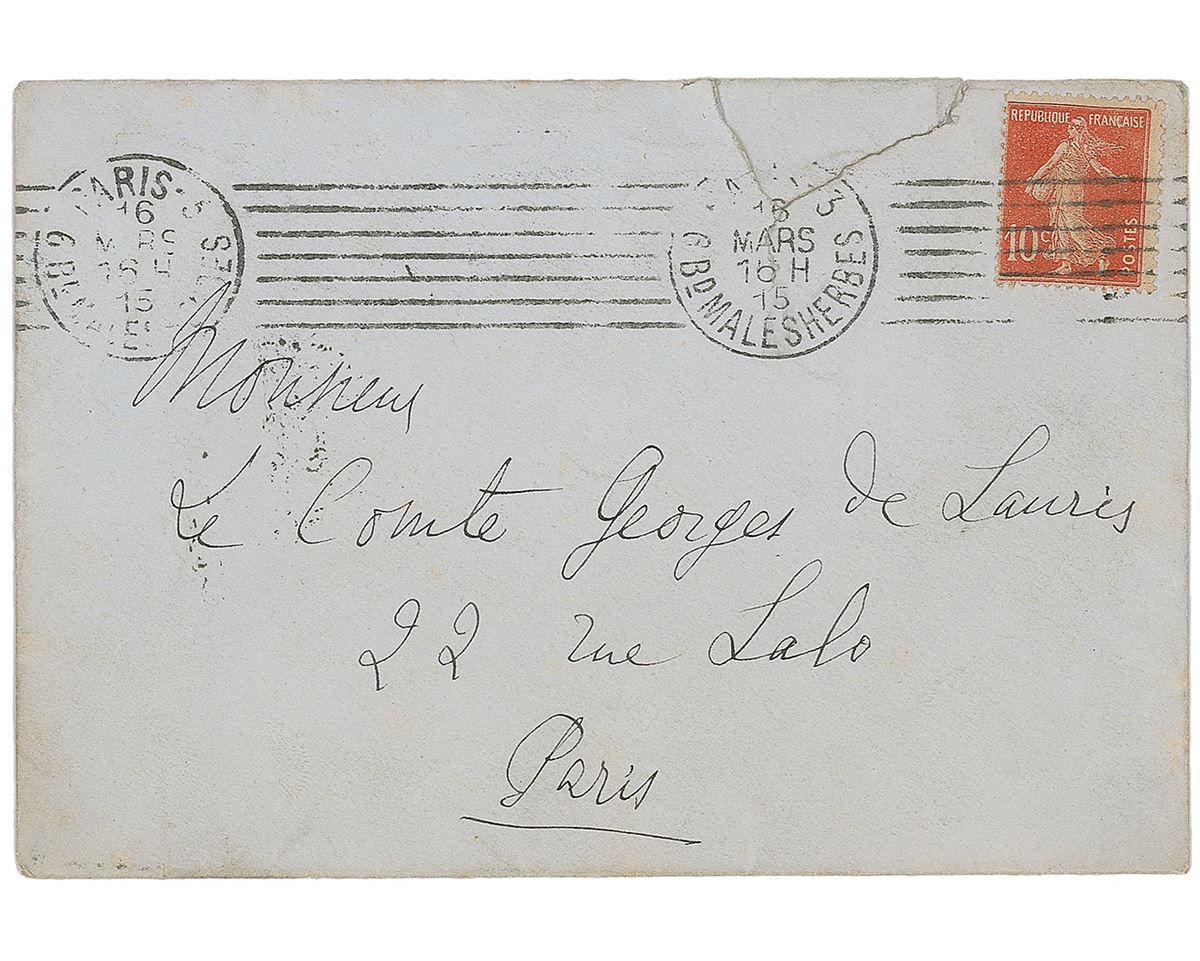 REPUBLIQUE FRANÇAISE
10c
POSTES
PARIS
16
MARS
16 H
15
6 BD MALESHERBES
3
16
MARS
16 H
15
6 BD MALESHERBES
Monsieur
Le Comte Georges de Lauris
22 rue Lalo
Paris